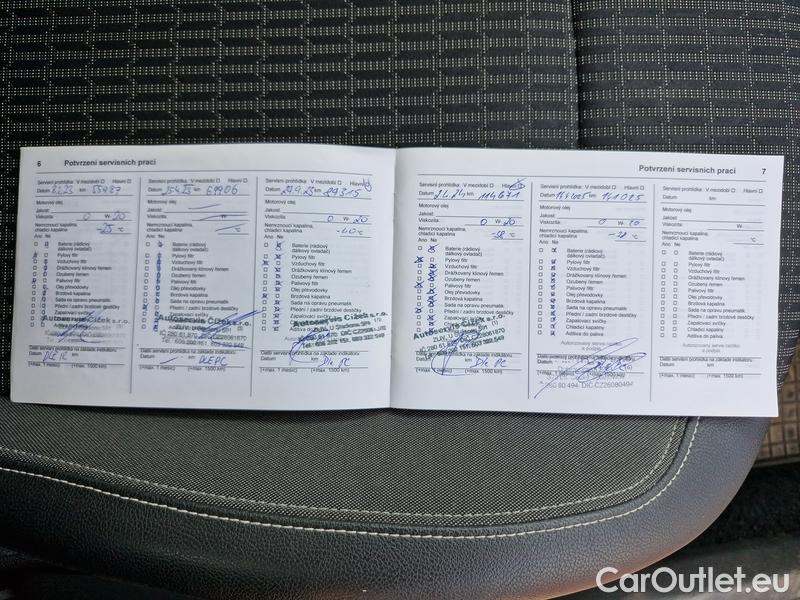 6 Potvrzení servisních prací
Servisní prohlídka: V mezidobí Hlavní
Datum km 55787
Motorový olej
Jakost:
Viskozita: 0 W- 20
Nemrznoucí kapalina,
chladicí kapalina -25 °C
Ano Ne
Baterie (rádiový
dálkový ovladač)
Pylový filtr
Vzduchový filtr
Drážkovaný klínový řemen
Ozubený řemen
Palivový filtr
Olej převodovky
Brzdová kapalina
Sada na opravu pneumatik
Přední / zadní brzdové destičky
Autoservis Čížek s.r.o.
Další servisní prohlídka na základě indikátoru:
Datum km
(+max. 1 měsíc) (+max. 1500 km)
Servisní prohlídka: V mezidobí Hlavní
Datum km 61906
Motorový olej
Jakost:
Viskozita: W-
Nemrznoucí kapalina,
chladicí kapalina °C
Ano Ne
Baterie (rádiový
dálkový ovladač)
Pylový filtr
Vzduchový filtr
Drážkovaný klínový řemen
Ozubený řemen
Palivový filtr
Olej převodovky
Brzdová kapalina
Sada na opravu pneumatik
Přední / zadní brzdové destičky
Autoservis Čížek s.r.o.
Další servisní prohlídka na základě indikátoru:
Datum km
(+max. 1 měsíc) (+max. 1500 km)
Servisní prohlídka: V mezidobí Hlavní
Datum 27.9.23 km 89315
Motorový olej
Jakost:
Viskozita: 0 W- 20
Nemrznoucí kapalina,
chladicí kapalina -40 °C
Ano Ne
Baterie (rádiový
dálkový ovladač)
Pylový filtr
Vzduchový filtr
Drážkovaný klínový řemen
Ozubený řemen
Palivový filtr
Olej převodovky
Brzdová kapalina
Sada na opravu pneumatik
Přední / zadní brzdové destičky
Autoservis Čížek s.r.o.
Další servisní prohlídka na základě indikátoru:
Datum km
(+max. 1 měsíc) (+max. 1500 km)
Potvrzení servisních prací 7
Servisní prohlídka: V mezidobí Hlavní
Datum 2.4.24 km 114671
Motorový olej
Jakost:
Viskozita: 0 W- 20
Nemrznoucí kapalina,
chladicí kapalina -38 °C
Ano Ne
Baterie (rádiový
dálkový ovladač)
Pylový filtr
Vzduchový filtr
Drážkovaný klínový řemen
Ozubený řemen
Palivový filtr
Olej převodovky
Brzdová kapalina
Sada na opravu pneumatik
Přední / zadní brzdové destičky
Zapalovací svíčky
Autoservis Čížek s.r.o.
Další servisní prohlídka na základě indikátoru:
Datum km
(+max. 1 měsíc) (+max. 1500 km)
Servisní prohlídka: V mezidobí Hlavní
Datum km 141085
Motorový olej
Jakost:
Viskozita: 0 W- 20
Nemrznoucí kapalina,
chladicí kapalina °C
Ano Ne
Baterie (rádiový
dálkový ovladač)
Pylový filtr
Vzduchový filtr
Drážkovaný klínový řemen
Ozubený řemen
Palivový filtr
Olej převodovky
Brzdová kapalina
Sada na opravu pneumatik
Přední / zadní brzdové destičky
Zapalovací svíčky
Aditiva do paliva
Autorizovaný servis razítko
a podpis
260 80 494 DIČ CZ26080494
(+max. 1 měsíc) (+max. 1500 km)
Servisní prohlídka: V mezidobí Hlavní
Datum km
Motorový olej
Jakost:
Viskozita: W-
Nemrznoucí kapalina,
chladicí kapalina °C
Ano Ne
Baterie (rádiový
dálkový ovladač)
Pylový filtr
Vzduchový filtr
Drážkovaný klínový řemen
Ozubený řemen
Palivový filtr
Olej převodovky
Brzdová kapalina
Sada na opravu pneumatik
Přední / zadní brzdové destičky
Zapalovací svíčky
Aditiva do paliva
Autorizovaný servis razítko
a podpis
Další servisní prohlídka na základě indikátoru:
Datum km
(+max. 1 měsíc) (+max. 1500 km)
CarOutlet.eu